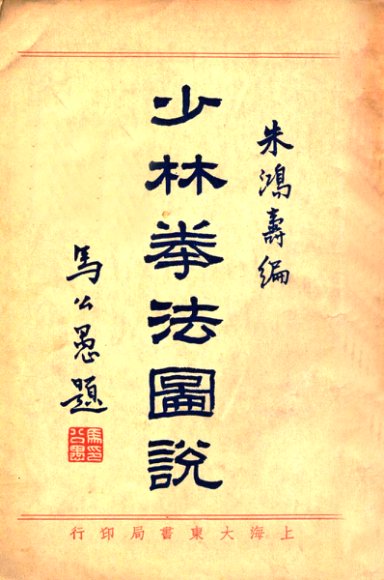 朱鴻壽編
少林拳法圖說
馬公愚題
馬公愚印
上海大東書局印行